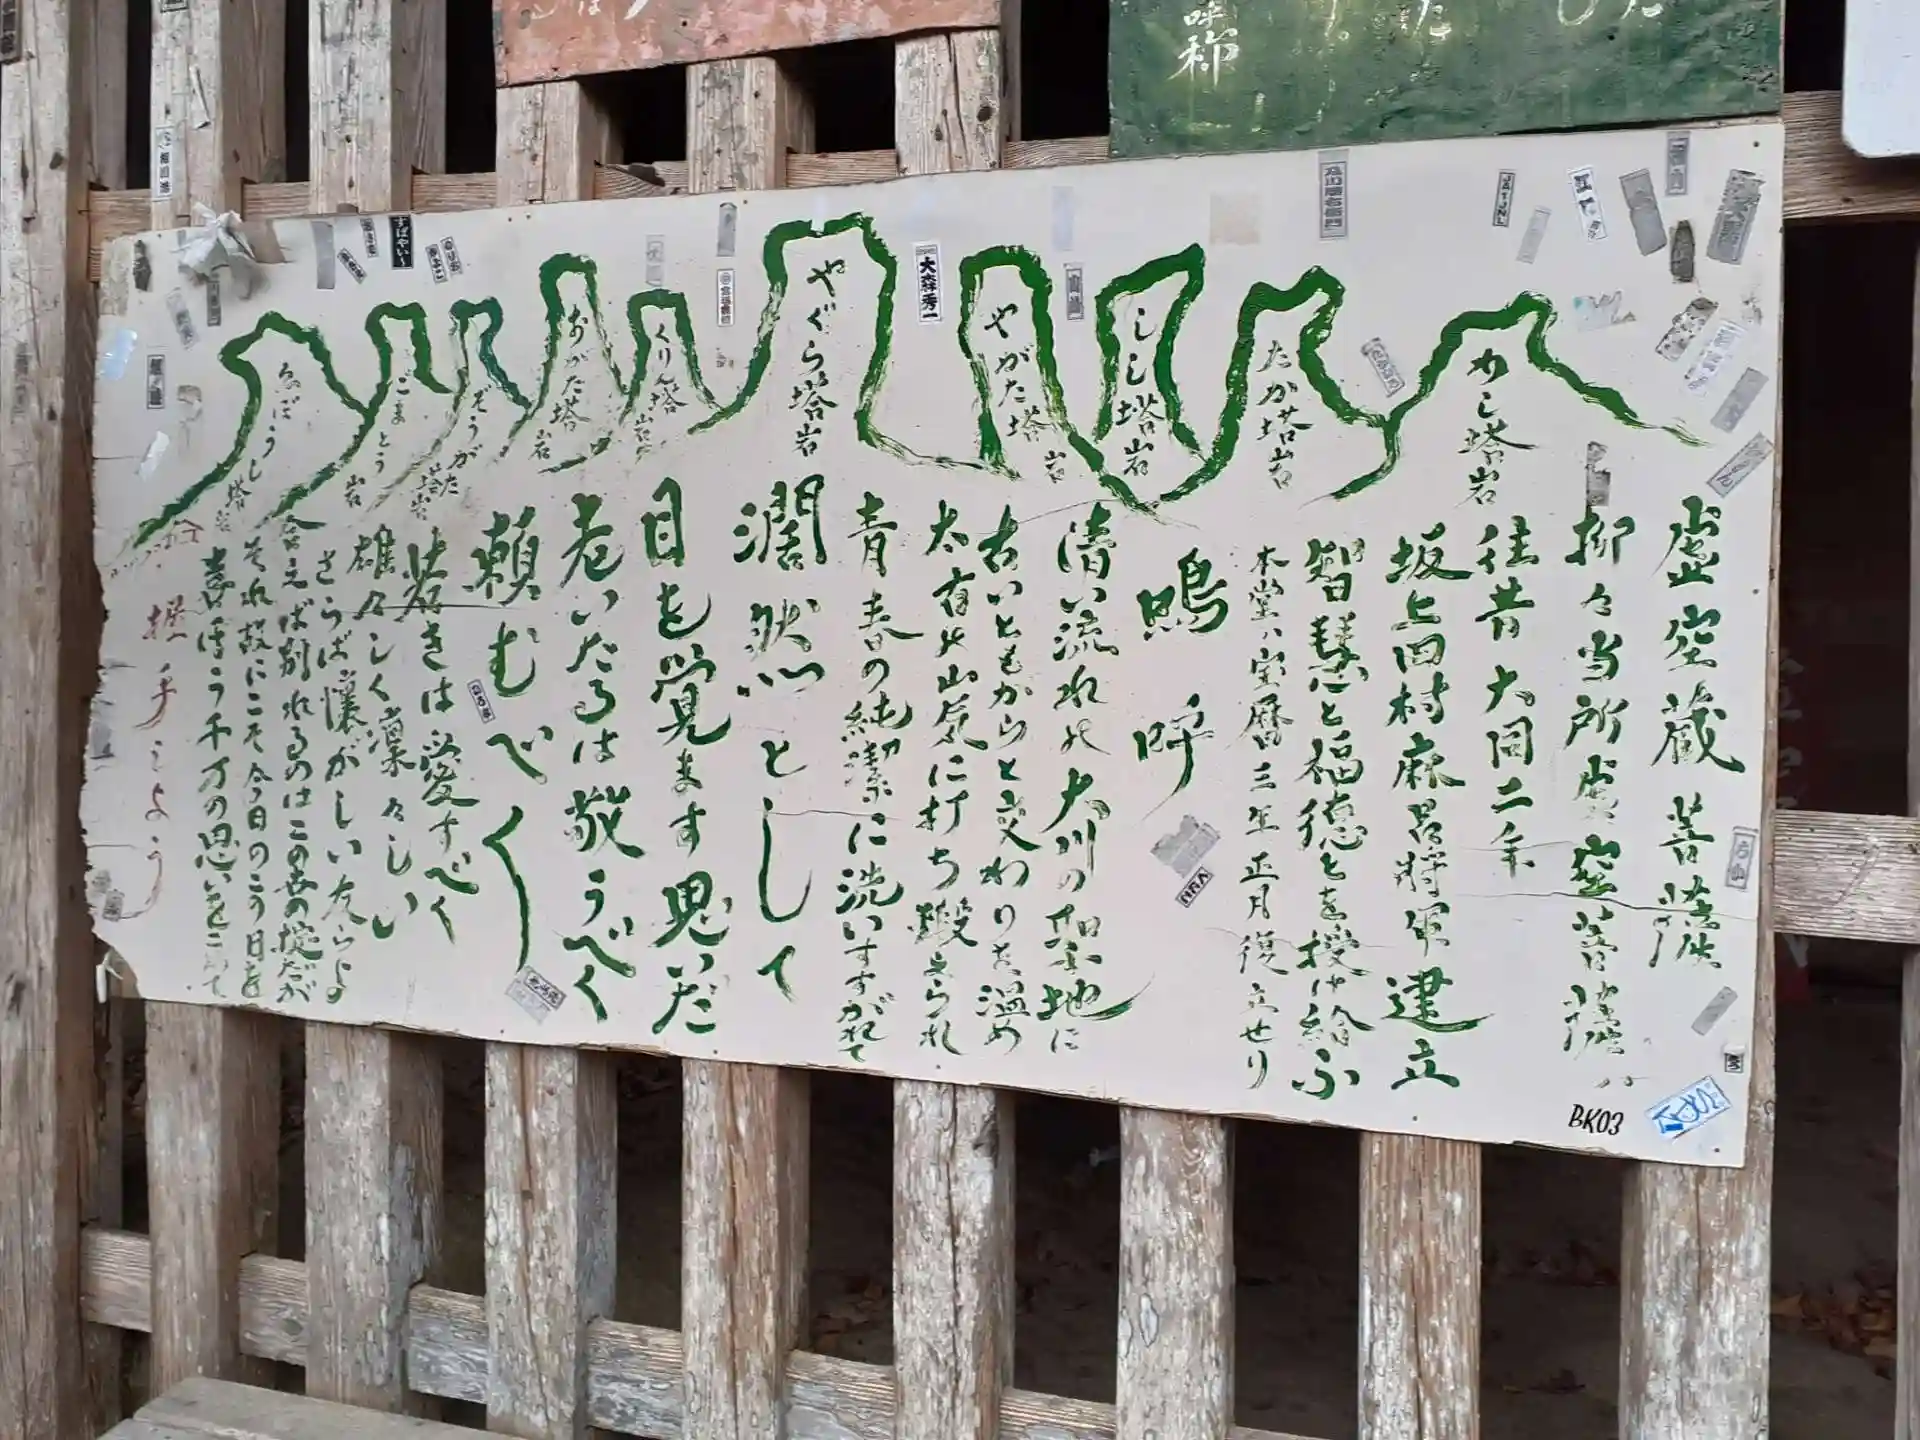 呼称
わし塔岩
たか塔岩
しし塔岩
やがた塔岩
やぐら塔岩
くりん塔岩
おがた塔岩
ぞうがた塔岩
ごまとう岩
ゑぼうし塔岩
虚空蔵菩薩
抑々当所虚空蔵菩薩ハ
往昔大同二年
坂上田村麻呂将軍建立
智慧と福徳とを授け給ふ
本堂ハ宝暦三年正月復立せり
嗚呼
清い流れの大川の聖地に
古いともがらと交わりを温め
太古の山気に打ち鍛えられ
青春の純潔に洗いすすがれて
濶然として
目を覚ます思いだ
老いたるは敬うべく
頼むべく
若きは愛すべく
雄々しく凛々しい
さらば懐がしい友らよ
会えば別れるのはこの世の掟だが
それ故にこそ今日のこう日を
喜ぼう千万の思いをこめて
握手しよう
大森秀一
BK03